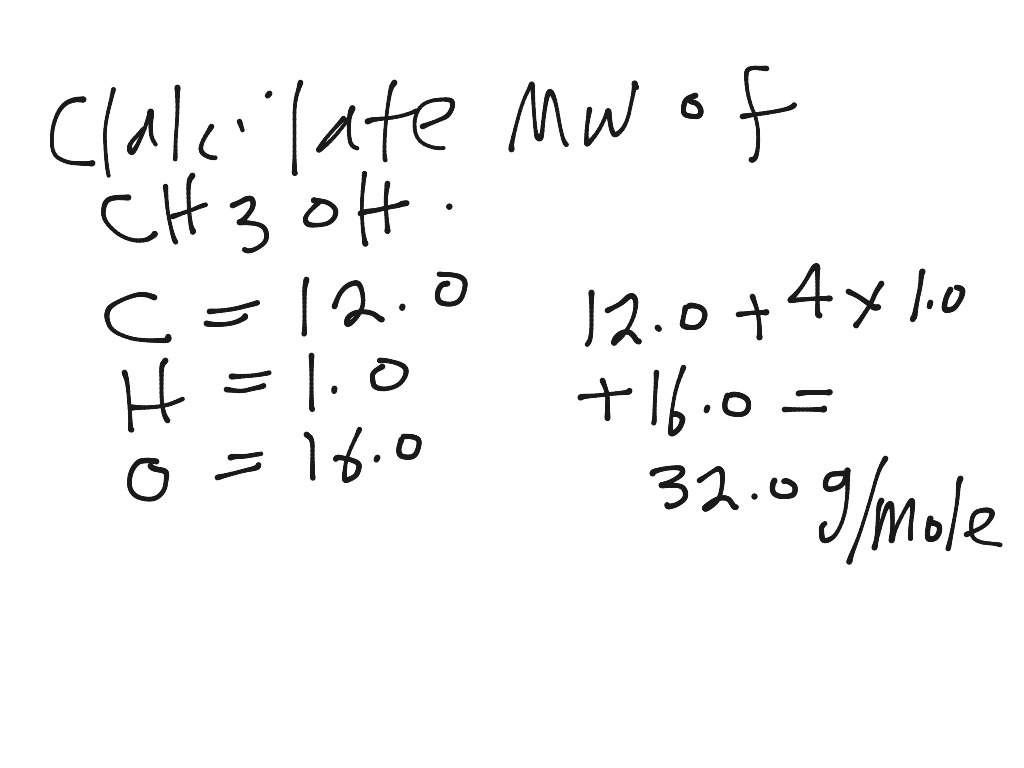 Clalcilate MW of
CH3OH.
C = 12.0
H = 1.0
O = 16.0
12.0 + 4 x 1.0
+ 16.0 =
32.0 g/mole